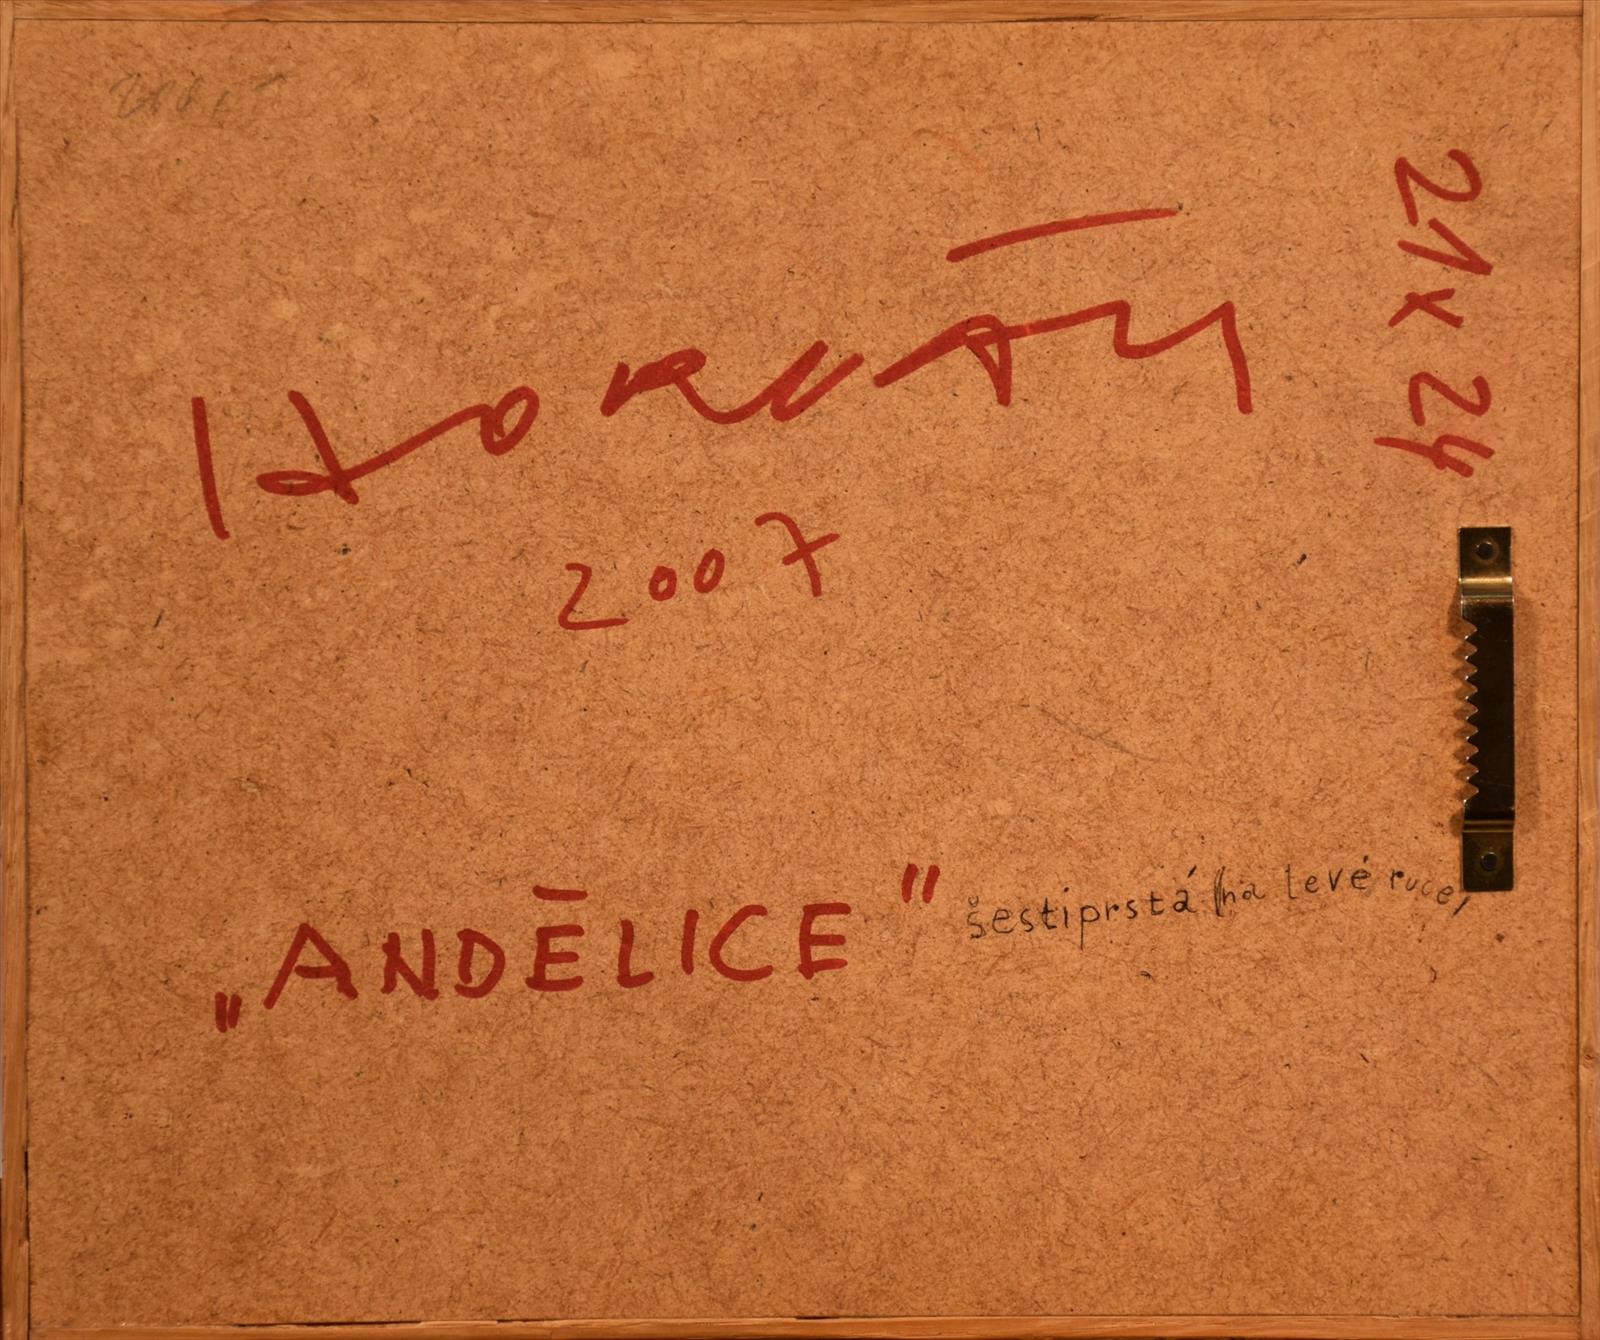 HORVÁTH
2007
21 x 24
„ANDĚLICE" šestiprstá (na levé ruce,